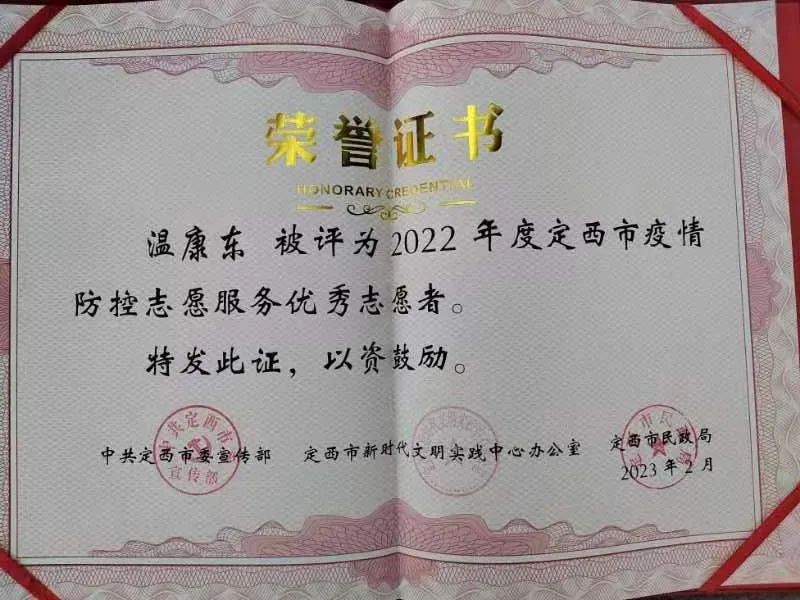 荣誉证书
HONORARY CREDENTIAL
温康东 被评为2022年度定西市疫情
防控志愿服务优秀志愿者。
特发此证，以资鼓励。
中共定西市委宣传部 定西市新时代文明实践中心办公室 定西市民政局
2023年2月
中共定西市
宣传部